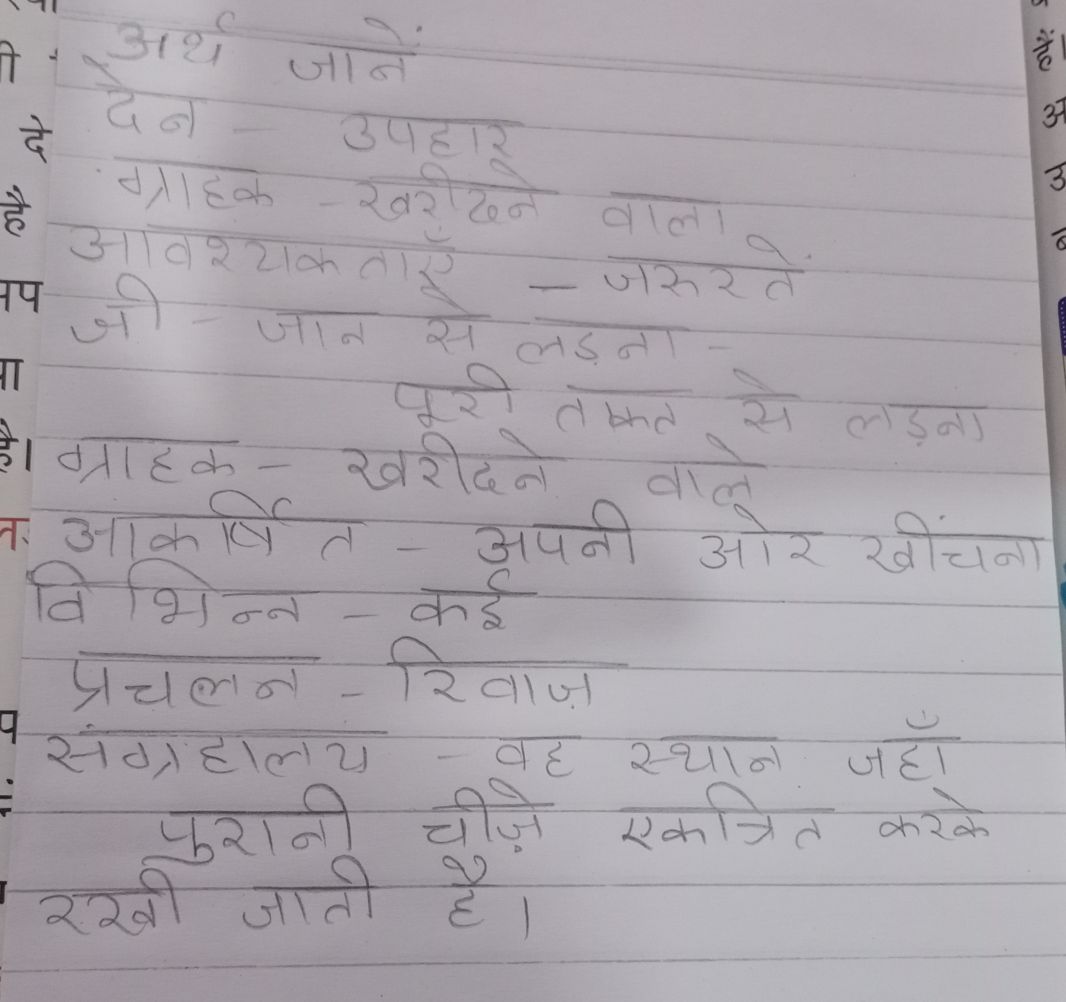 अर्थ जानें
देन - उपहार
ग्राहक - खरीदने वाला
आवश्यकताएँ - जरूरतें
जी - जान से लड़ना -
पूरी तकत से लड़ना
ग्राहक - खरीदने वाले
आकर्षित - अपनी ओर खींचना
विभिन्न - कई
प्रचलन - रिवाज़
संग्रहालय - वह स्थान जहाँ
पुरानी चीज़े एकत्रित करके
रखी जाती है।